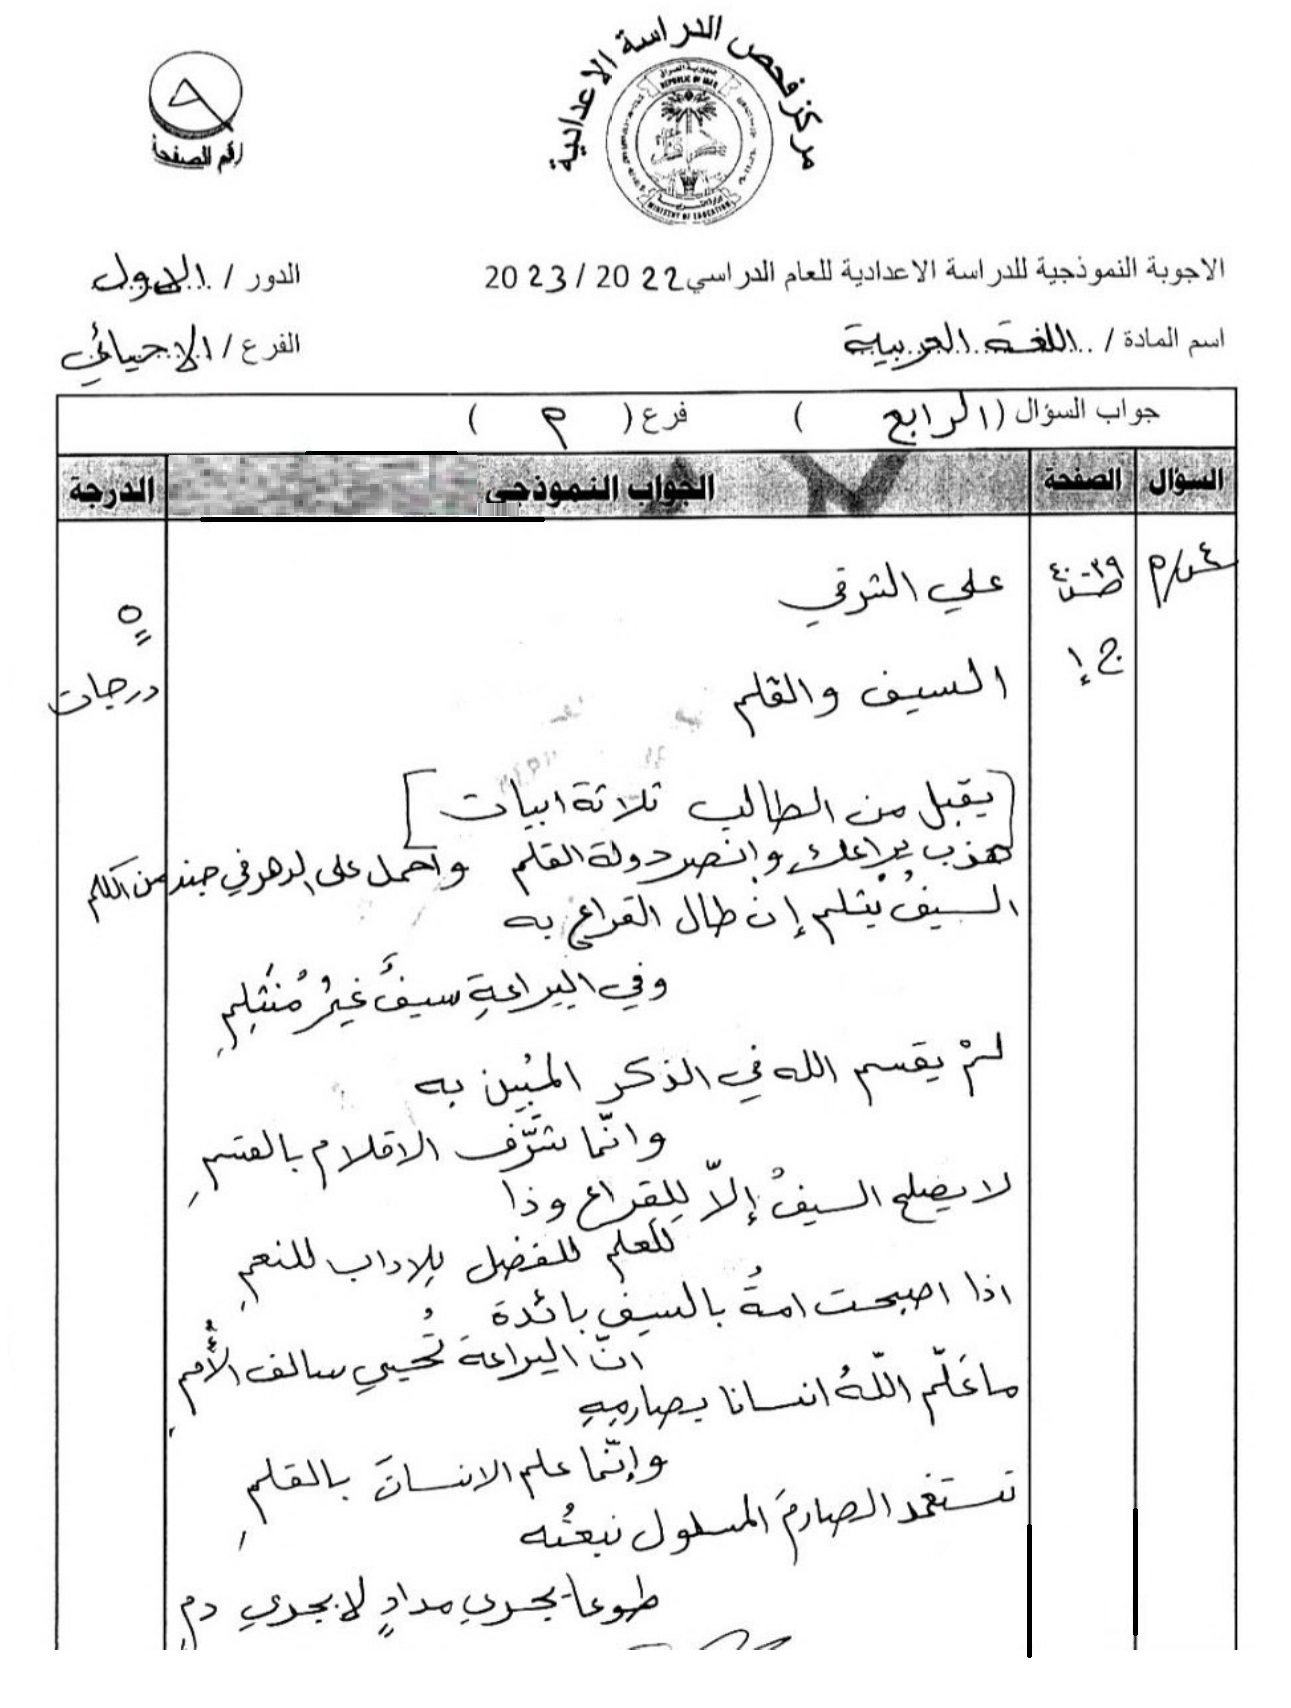 مركز فحص الدراسة الاعدادية
جمهورية العراق
REPUBLIC OF IRAQ
وزارة التربية
MINISTRY OF EDUCATION
رقم الصفحة
الاجوبة النموذجية للدراسة الاعدادية للعام الدراسي 2022 / 2023
الدور / الاول
اسم المادة / اللغة العربية
الفرع / الاحيائي
جواب السؤال ( الرابع ) فرع ( م )
السؤال الصفحة الجواب النموذجي الدرجة
س٤/م ص ٣٩-٤٠ علي الشرقي ٥
ج ١ السيف والقلم درجات
[يقبل من الطالب ثلاثة ابيات]
هذب يراعك وانصر دولة القلم واحمل على الدهر في جند من الكلم
السيفُ يُثلم إن طال القراع به
وفي اليراعةِ سيفٌ غيرُ مُنثلِمِ
لمْ يقسم الله في الذكر المُبين به
وانّما شرَّف الاقلام بالقسمِ
لا يصلح السيفُ إلاّ لِلقراع وذا
للعلم للفضل للاداب للنعمِ
اذا اصبحت امةُ بالسيف بائدة
انّ اليراعة تُحيي سالف الأُممِ
ما عَلّم اللّهُ انسانا بصارمِهِ
وإنّما علم الانسانَ بالقلمِ
تستغمد الصارمَ المسلول نبعتُه
طوعا يجري مدادٍ لا يجري دمِ